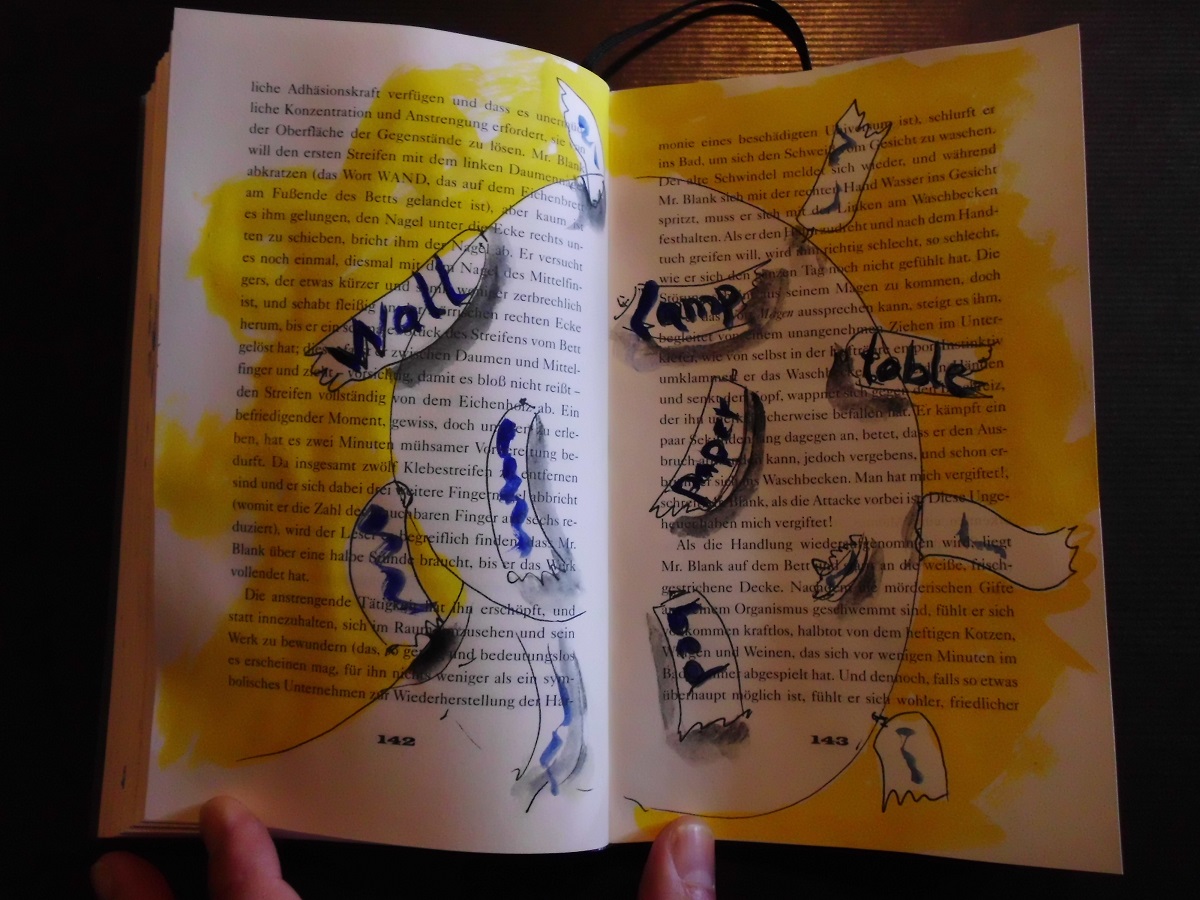 liche Adhäsionskraft verfügen und dass es
liche Konzentration und Anstrengung erfordert, sie von
der Oberfläche der Gegenstände zu lösen. Mr. Blank
will den ersten Streifen mit dem linken Daumennagel
abkratzen (das Wort WAND, das auf dem Eichenbrett
am Fußende des Betts gelandet ist), aber kaum ist
es ihm gelungen, den Nagel unter die Ecke rechts un-
ten zu schieben, bricht ihm der Nagel ab. Er versucht
es noch einmal, diesmal mit dem Nagel des Mittelfin-
gers, der etwas kürzer und somit weniger zerbrechlich
ist, und schabt fleißig an der rechten Ecke
herum, bis er ein Stück des Streifens vom Bett
gelöst hat; er zwischen Daumen und Mittel-
finger und zieht – vorsichtig, damit es bloß nicht reißt –
den Streifen vollständig von dem Eichenholz ab. Ein
befriedigender Moment, gewiss, doch um den zu erle-
ben, hat es zwei Minuten mühsamer Vorbereitung be-
durft. Da insgesamt zwölf Klebestreifen zu entfernen
sind und er sich dabei drei weitere Fingernägel abbricht
(womit er die Zahl der brauchbaren Finger auf sechs re-
duziert), wird der Leser es begreiflich finden, dass Mr.
Blank über eine halbe Stunde braucht, bis er das Werk
vollendet hat.
Die anstrengende Tätigkeit hat ihn erschöpft, und
statt innezuhalten, sich im Raum umzusehen und sein
Werk zu bewundern (das, so gering und bedeutungslos
es erscheinen mag, für ihn nichts weniger als ein sym-
bolisches Unternehmen zur Wiederherstellung der Har-
142
Wall
monie eines beschädigten Universum ist), schlurft er
ins Bad, um sich den Schweiß vom Gesicht zu waschen.
Der alte Schwindel meldet sich wieder, und während
Mr. Blank sich mit der rechten Hand Wasser ins Gesicht
spritzt, muss er sich mit der Linken am Waschbecken
festhalten. Als er den Hahn zudreht und nach dem Hand-
tuch greifen will, wird ihm richtig schlecht, so schlecht,
wie er sich den ganzen Tag noch nicht gefühlt hat. Die
aus seinem Magen zu kommen, doch
das Wort Magen aussprechen kann, steigt es ihm,
begleitet von einem unangenehmen Ziehen im Unter-
kiefer, wie von selbst in der
umklammert er das Händen
und senkt den Kopf, wappnet sich gegen den
der ihn befallen hat. Er kämpft ein
paar Sekunden lang dagegen an, betet, dass er den Aus-
kann, jedoch vergebens, und schon er-
bricht er sich ins Waschbecken. Man hat mich vergiftet!,
schreit Mr. Blank, als die Attacke vorbei ist. Diese Unge-
heuer haben mich vergiftet!
Als die Handlung wieder aufgenommen wird, liegt
Mr. Blank auf dem Bett und an die weiße, frisch-
gestrichene Decke. Nachdem die mörderischen Gifte
aus seinem Organismus geschwemmt sind, fühlt er sich
vollkommen kraftlos, halbtot von dem heftigen Kotzen,
Würgen und Weinen, das sich vor wenigen Minuten im
Badezimmer abgespielt hat. Und dennoch, falls so etwas
überhaupt möglich ist, fühlt er sich wohler, friedlicher
143
lamp
table
paper
bed